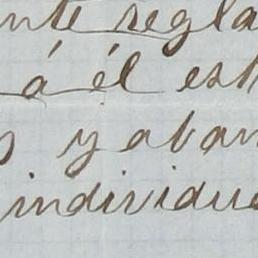 nte regla
á él est
y aban
individuo